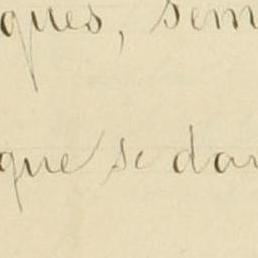 ques, sem
que se dan